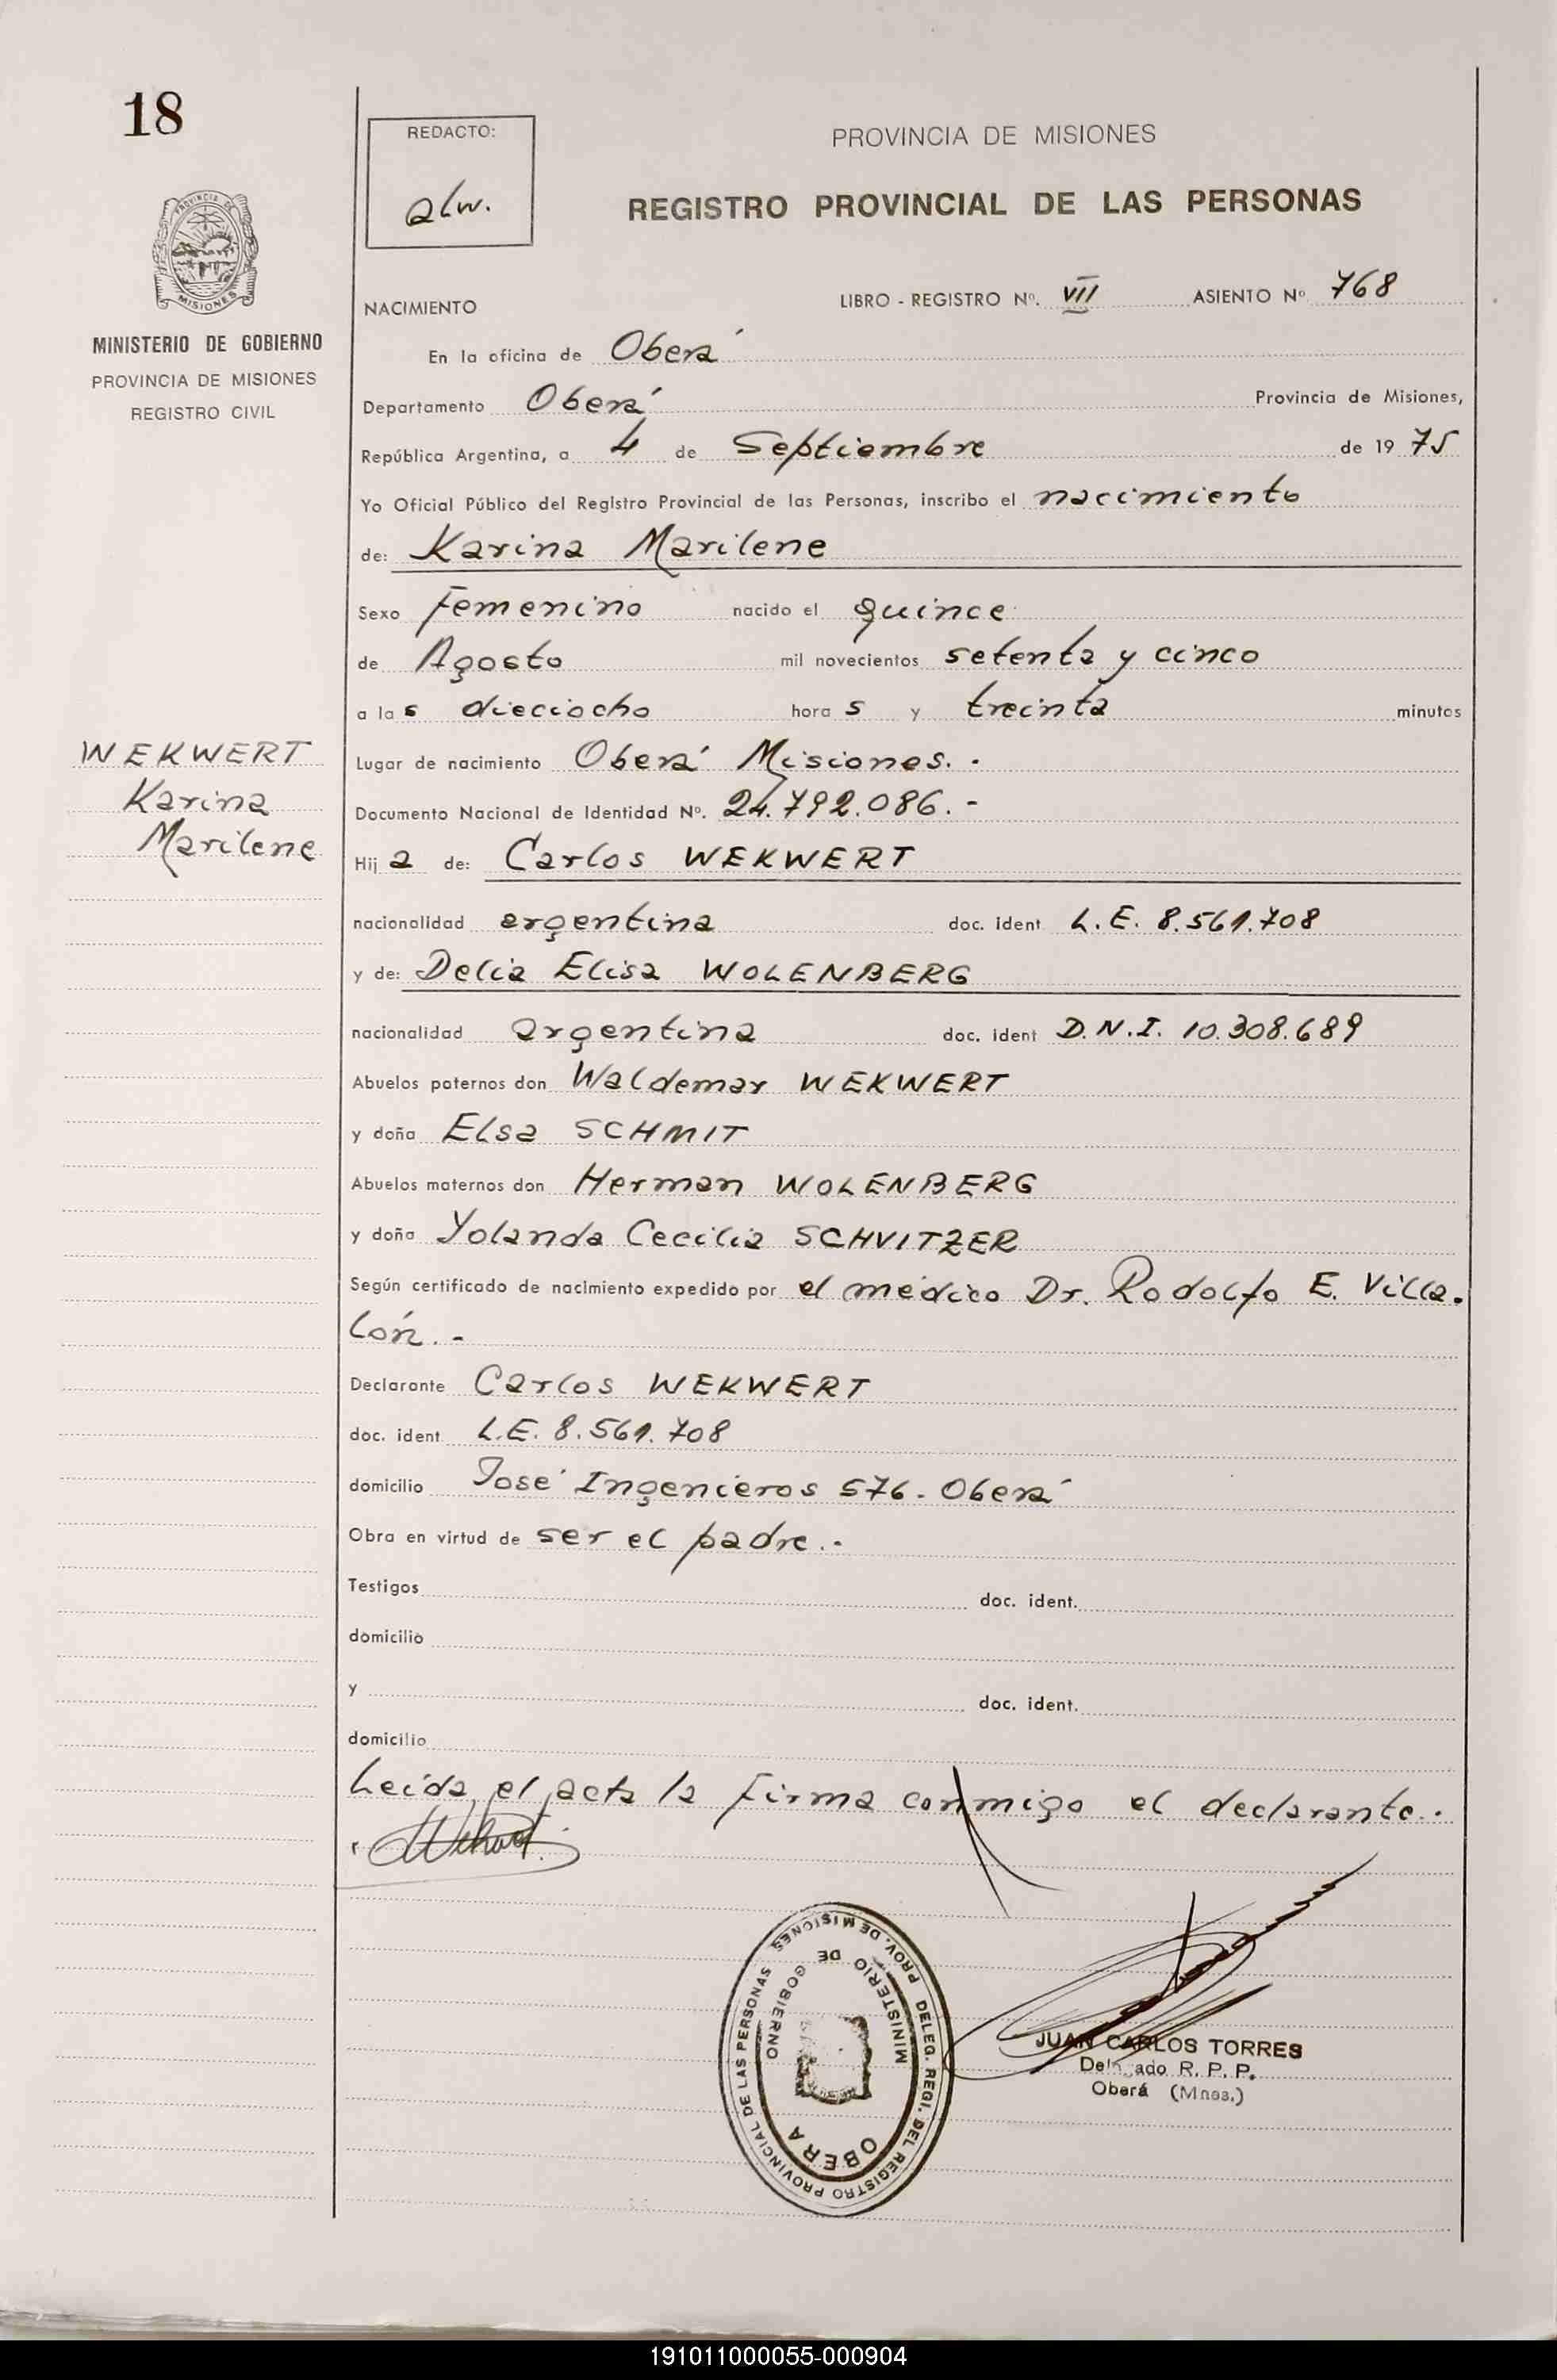 18
REDACTO:
alw.
PROVINCIA DE MISIONES
REGISTRO PROVINCIAL DE LAS PERSONAS
PROVINCIA DE
MISIONES
MINISTERIO DE GOBIERNO
PROVINCIA DE MISIONES
REGISTRO CIVIL
NACIMIENTO
LIBRO - REGISTRO Nº. VII ASIENTO Nº 768
En la oficina de Oberá
Departamento Oberá Provincia de Misiones,
República Argentina, a 4 de Septiembre de 1975
Yo Oficial Público del Registro Provincial de las Personas, inscribo el nacimiento
de: Karina Marilene
Sexo Femenino nacido el quince
de Agosto mil novecientos setenta y cinco
a las dieciocho horas y treinta minutos
WEKWERT
Karina
Marilene
Lugar de nacimiento Oberá Misiones.-
Documento Nacional de Identidad Nº. 24.792.086.-
Hija de: Carlos WEKWERT
nacionalidad argentina doc. ident L.E. 8.561.708
y de: Delia Elisa WOLENBERG
nacionalidad argentina doc. ident D.N.I. 10.308.689
Abuelos paternos don Waldemar WEKWERT
y doña Elsa SCHMIT
Abuelos maternos don Herman WOLENBERG
y doña Yolanda Cecilia SCHVITZER
Según certificado de nacimiento expedido por el médico Dr. Rodolfo E. Villa-
lón.-
Declarante Carlos WEKWERT
doc. ident. L.E. 8.561.708
domicilio José Ingenieros 576 - Oberá
Obra en virtud de ser el padre.-
Testigos doc. ident.
domicilio
y doc. ident.
domicilio
Leida el acta la firma conmigo el declarante.-
PROV. DE MISIONES
DELEG. REGI. DEL REGISTRO PROVINCIAL DE LAS PERSONAS
MINISTERIO DE GOBIERNO
OBERA
JUAN CARLOS TORRES
Delegado R. P. P.
Oberá (Mnes.)
191011000055-000904